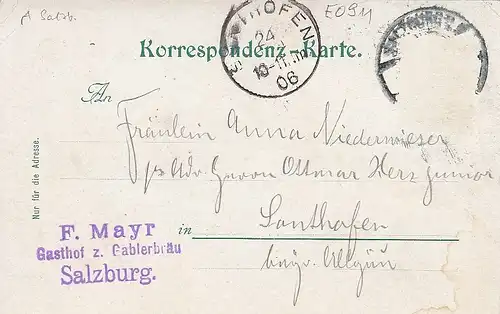 A Salzb.
E0911
SONTHOFEN
24
10-11.Vm
06
SALZBURG 2
Korrespondenz-Karte.
An
Fräulein Anna Niederwieser
p. Adr. Herrn Ottmar Herz junior
in Sonthofen
bayr. Allgäu
Nur für die Adresse.
F. Mayr
Gasthof z. Gablerbräu
Salzburg.